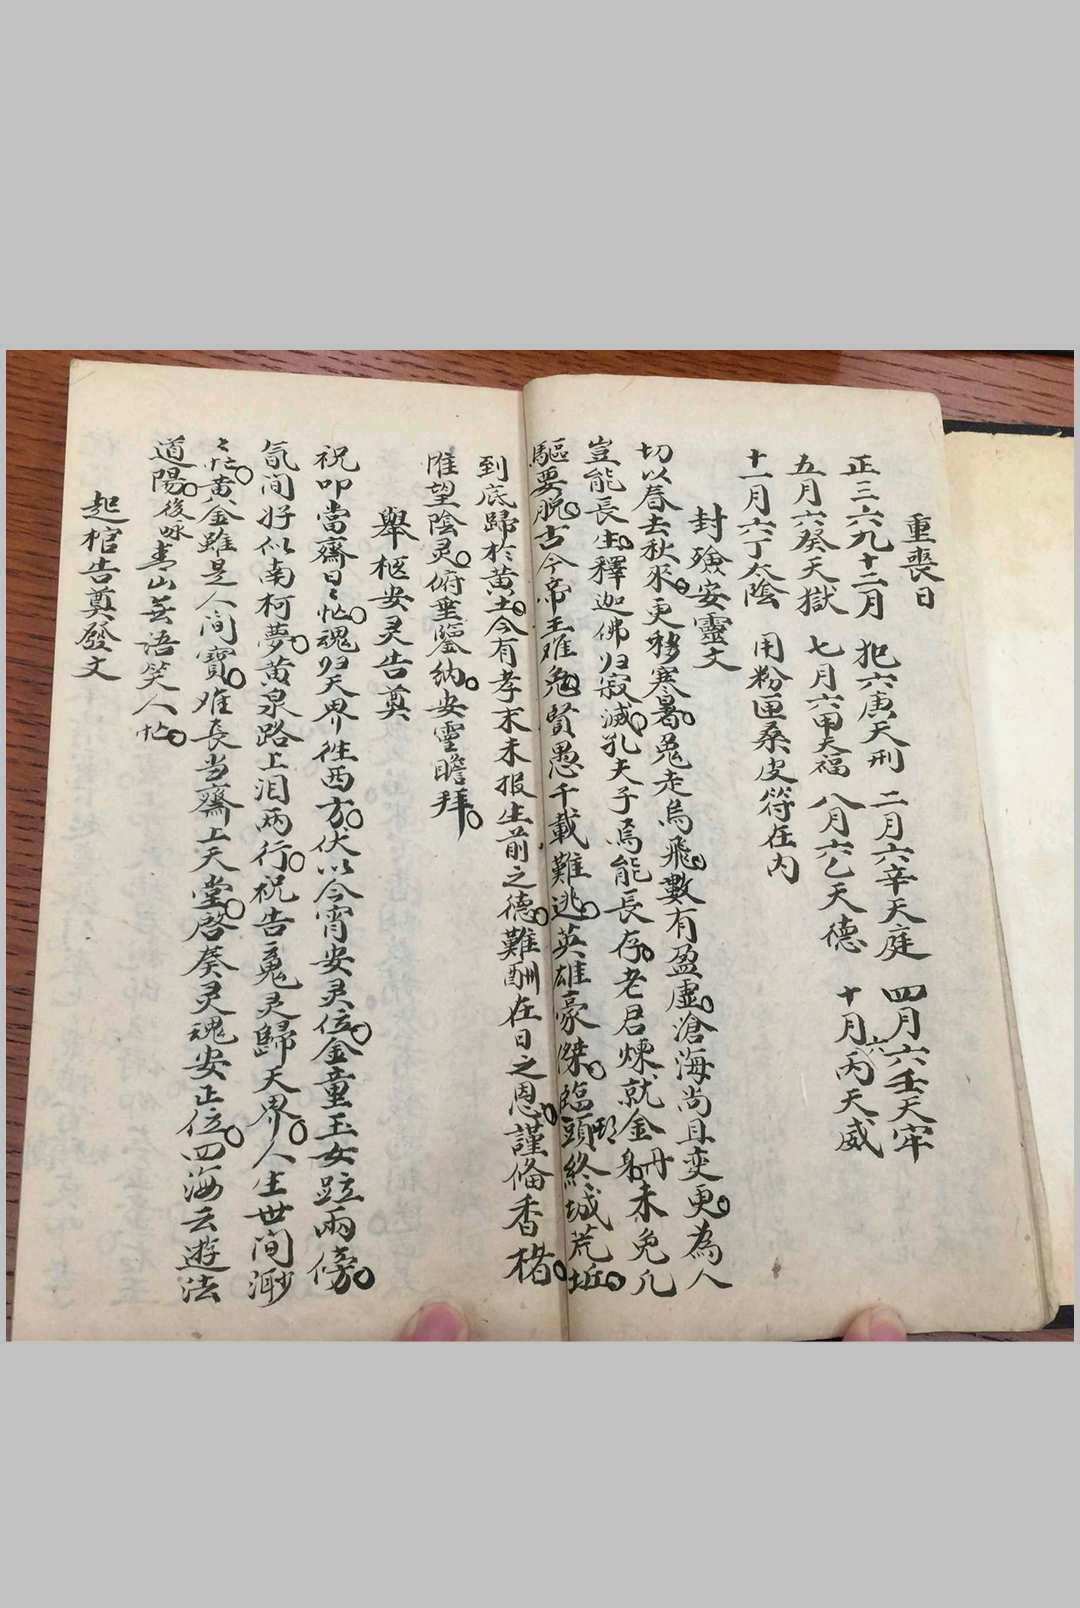 重喪日
正三六九十二月 犯六庚天刑 二月六辛天庭 四月六壬天牢
五月六癸天獄 七月六甲天福 八月六乙天德 十月六丙天威
十一月六丁太陰 用粉匣桑皮符在内
封殮安靈文
切以春去秋來更移寒暑兎走烏飛數有盈虛滄海尚且变更為人
豈能長生釋迦佛归寂滅孔夫子焉能長存老君煉就金丹未免凡
軀要脱古今帝王难免賢愚千載難逃英雄豪傑臨頭終城荒坵
到底歸於黄土今有孝末未报生前之德難酬在日之恩謹俻香楮
惟望陰灵俯垂鑒納安靈瞻拜
舉柩安灵告奠
祝叩當齋日〻忙魂归天界徃西方伏以今宵安灵位金童玉女竝兩傍
氤间好似南柯夢黄泉路上泪两行祝告亡灵歸天界人生世间渺
〻忙黄金雖是人间寶难長当齋上天堂啓奏灵魂安正位四海云遊法
道陽後咏青山無语笑人忙
起棺告奠發文